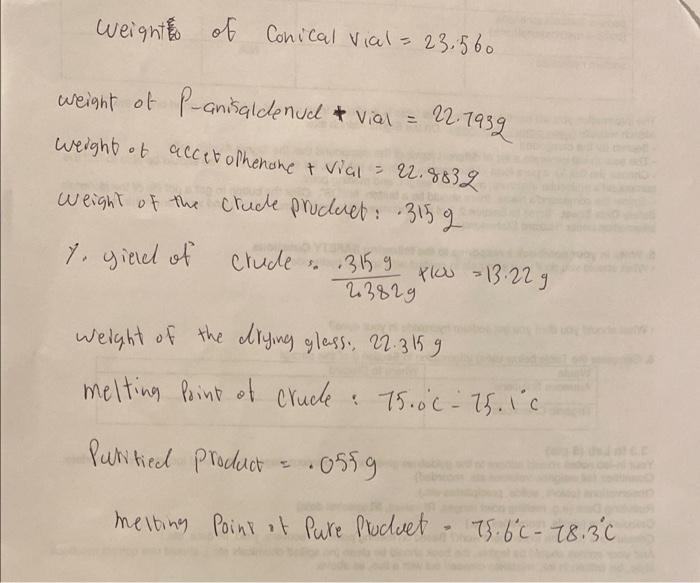 weight of Conical vial = 23.560
weight of P-anisaldehyd + vial = 22.793g
weight of accetophenone + vial = 22.883g
weight of the crude product: .315 g
%. yield of crude :. .315 g / 2.382g x100 = 13.22 g
weight of the drying glass:. 22.315 g
melting Point of crude : 75.0°C - 75.1°C
Purified product = .055 g
melting Point of Pure Product = 75.6°C - 78.3°C